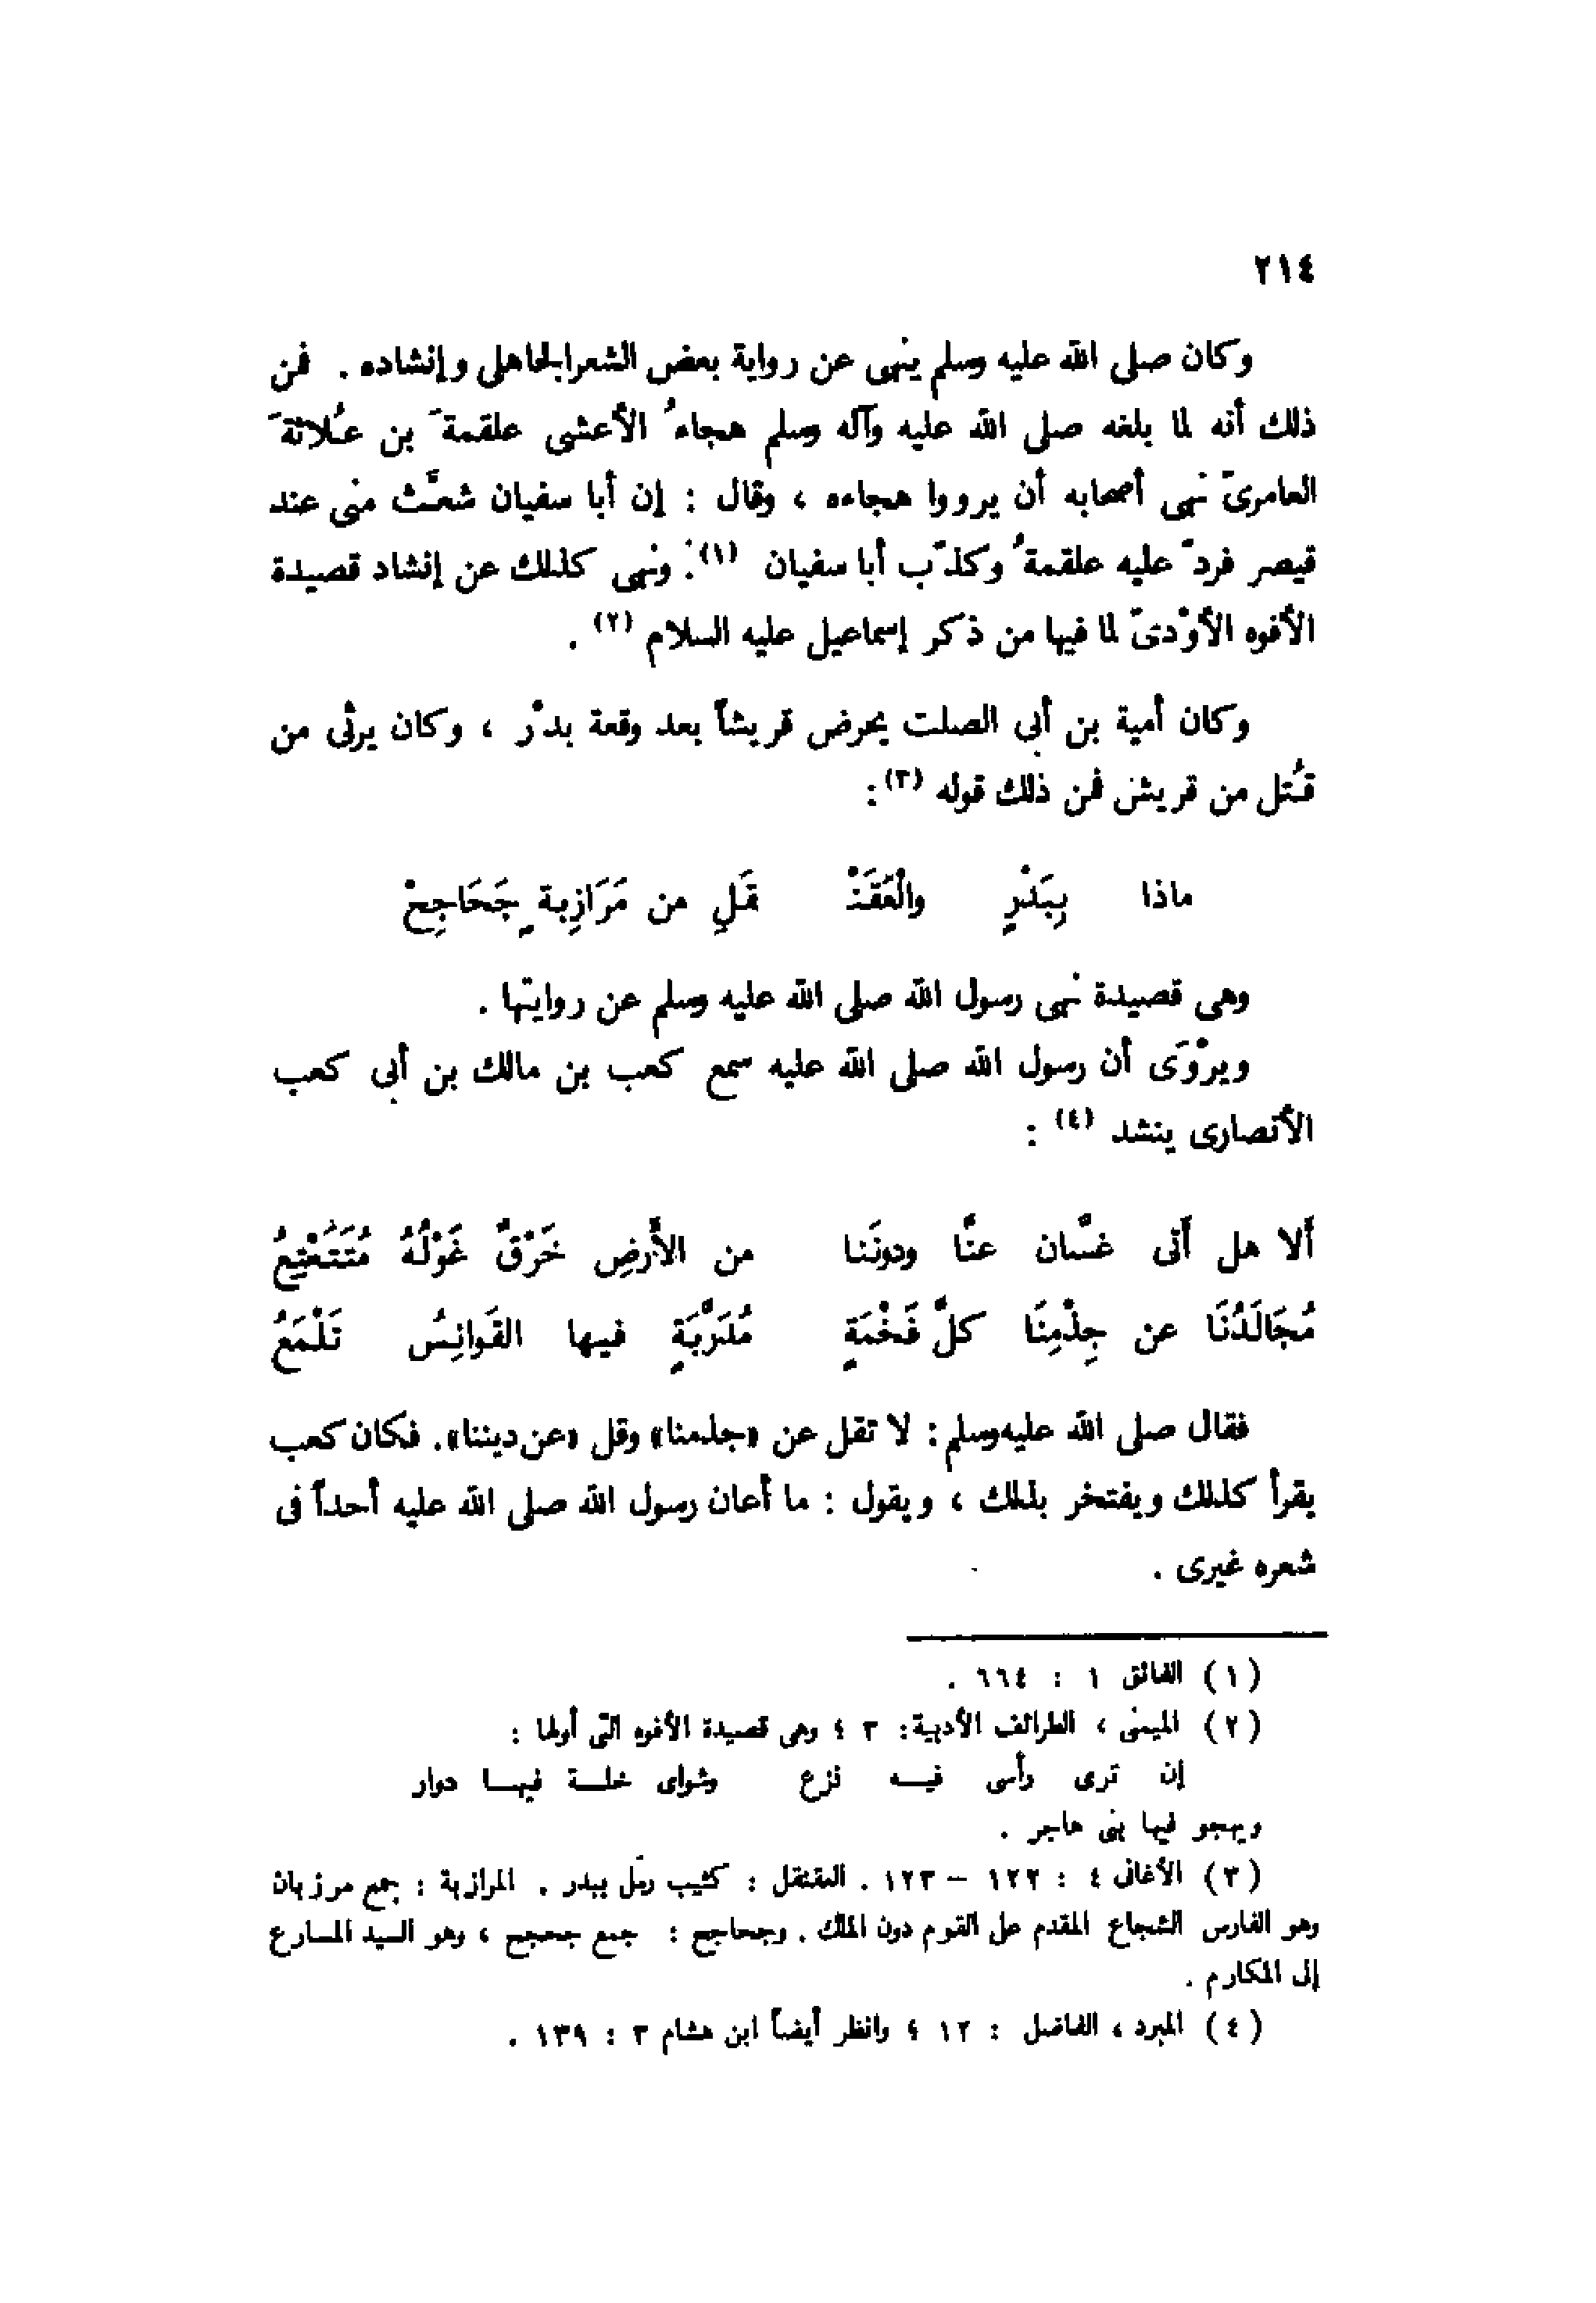 ٢١٤
وكان صلى الله عليه وسلم ينهى عن رواية بعض الشعر الجاهلى وإنشاده . فمن
ذلك أنه لما بلغه صلى الله عليه وآله وسلم هجاءُ الأعشى علقمةَ بن عُلاثةَ
العامرىّ نهى أصحابه أن يرووا هجاءه ، وقال : إن أبا سفيان شعَّث منى عند
قيصر فردّ عليه علقمةُ وكذّب أبا سفيان (١). ونهى كذلك عن إنشاد قصيدة
الأفوه الأوْدىّ لما فيها من ذكر إسماعيل عليه السلام (٢) .
وكان أمية بن أبى الصلت يحرض قريشاً بعد وقعة بدْر ، وكان يرثى من
قُتل من قريش فمن ذلك قوله (٣) :
ماذا بِبَدْرٍ والْعَقَنْـ قَلِ من مَرَازِبةٍ جَحَاجِحْ
وهى قصيدة نهى رسول الله صلى الله عليه وسلم عن روايتها .
ويرْوَى أن رسول الله صلى الله عليه سمع كعب بن مالك بن أبى كعب
الأنصارى ينشد (٤) :
أَلا هل أَتى غسَّان عنَّا ودونَنا من الأَرضِ خَرْقٌ غَوْلُهُ مُتَتَعْتِعُ
مُجَالَدُنَا عن جِذْمِنَا كلَّ فَخْمَةٍ مُدَرَّبَةٍ فيها القَوانِسُ تَلْمَعُ
فقال صلى الله عليه وسلم : لا تقل عن «جذمنا» وقل «عن ديننا». فكان كعب
يقرأ كذلك ويفتخر بذلك ، ويقول : ما أعان رسول الله صلى الله عليه أحداً فى
شعره غيرى .
(١) الفائق ١ : ٦٦٤ .
(٢) الميمنى ، الطرائف الأدبية : ٣ ؛ وهى قصيدة الأفوه التى أولها :
إن ترى رأسى فيـه نزع وشواى خلـة فيهـا دوار
ويهجو فيها بنى هاجر .
(٣) الأغانى ٤ : ١٢٢ – ١٢٣ . العقنقل : كثيب رمل ببدر . المرازبة : جمع مرزبان
وهو الفارس الشجاع المقدم على القوم دون الملك . وجحاجح : جمع جحجح ، وهو السيد المسارع
إلى المكارم .
(٤) المبرد ، الفاضل : ١٢ ؛ وانظر أيضاً ابن هشام ٣ : ١٣٩ .